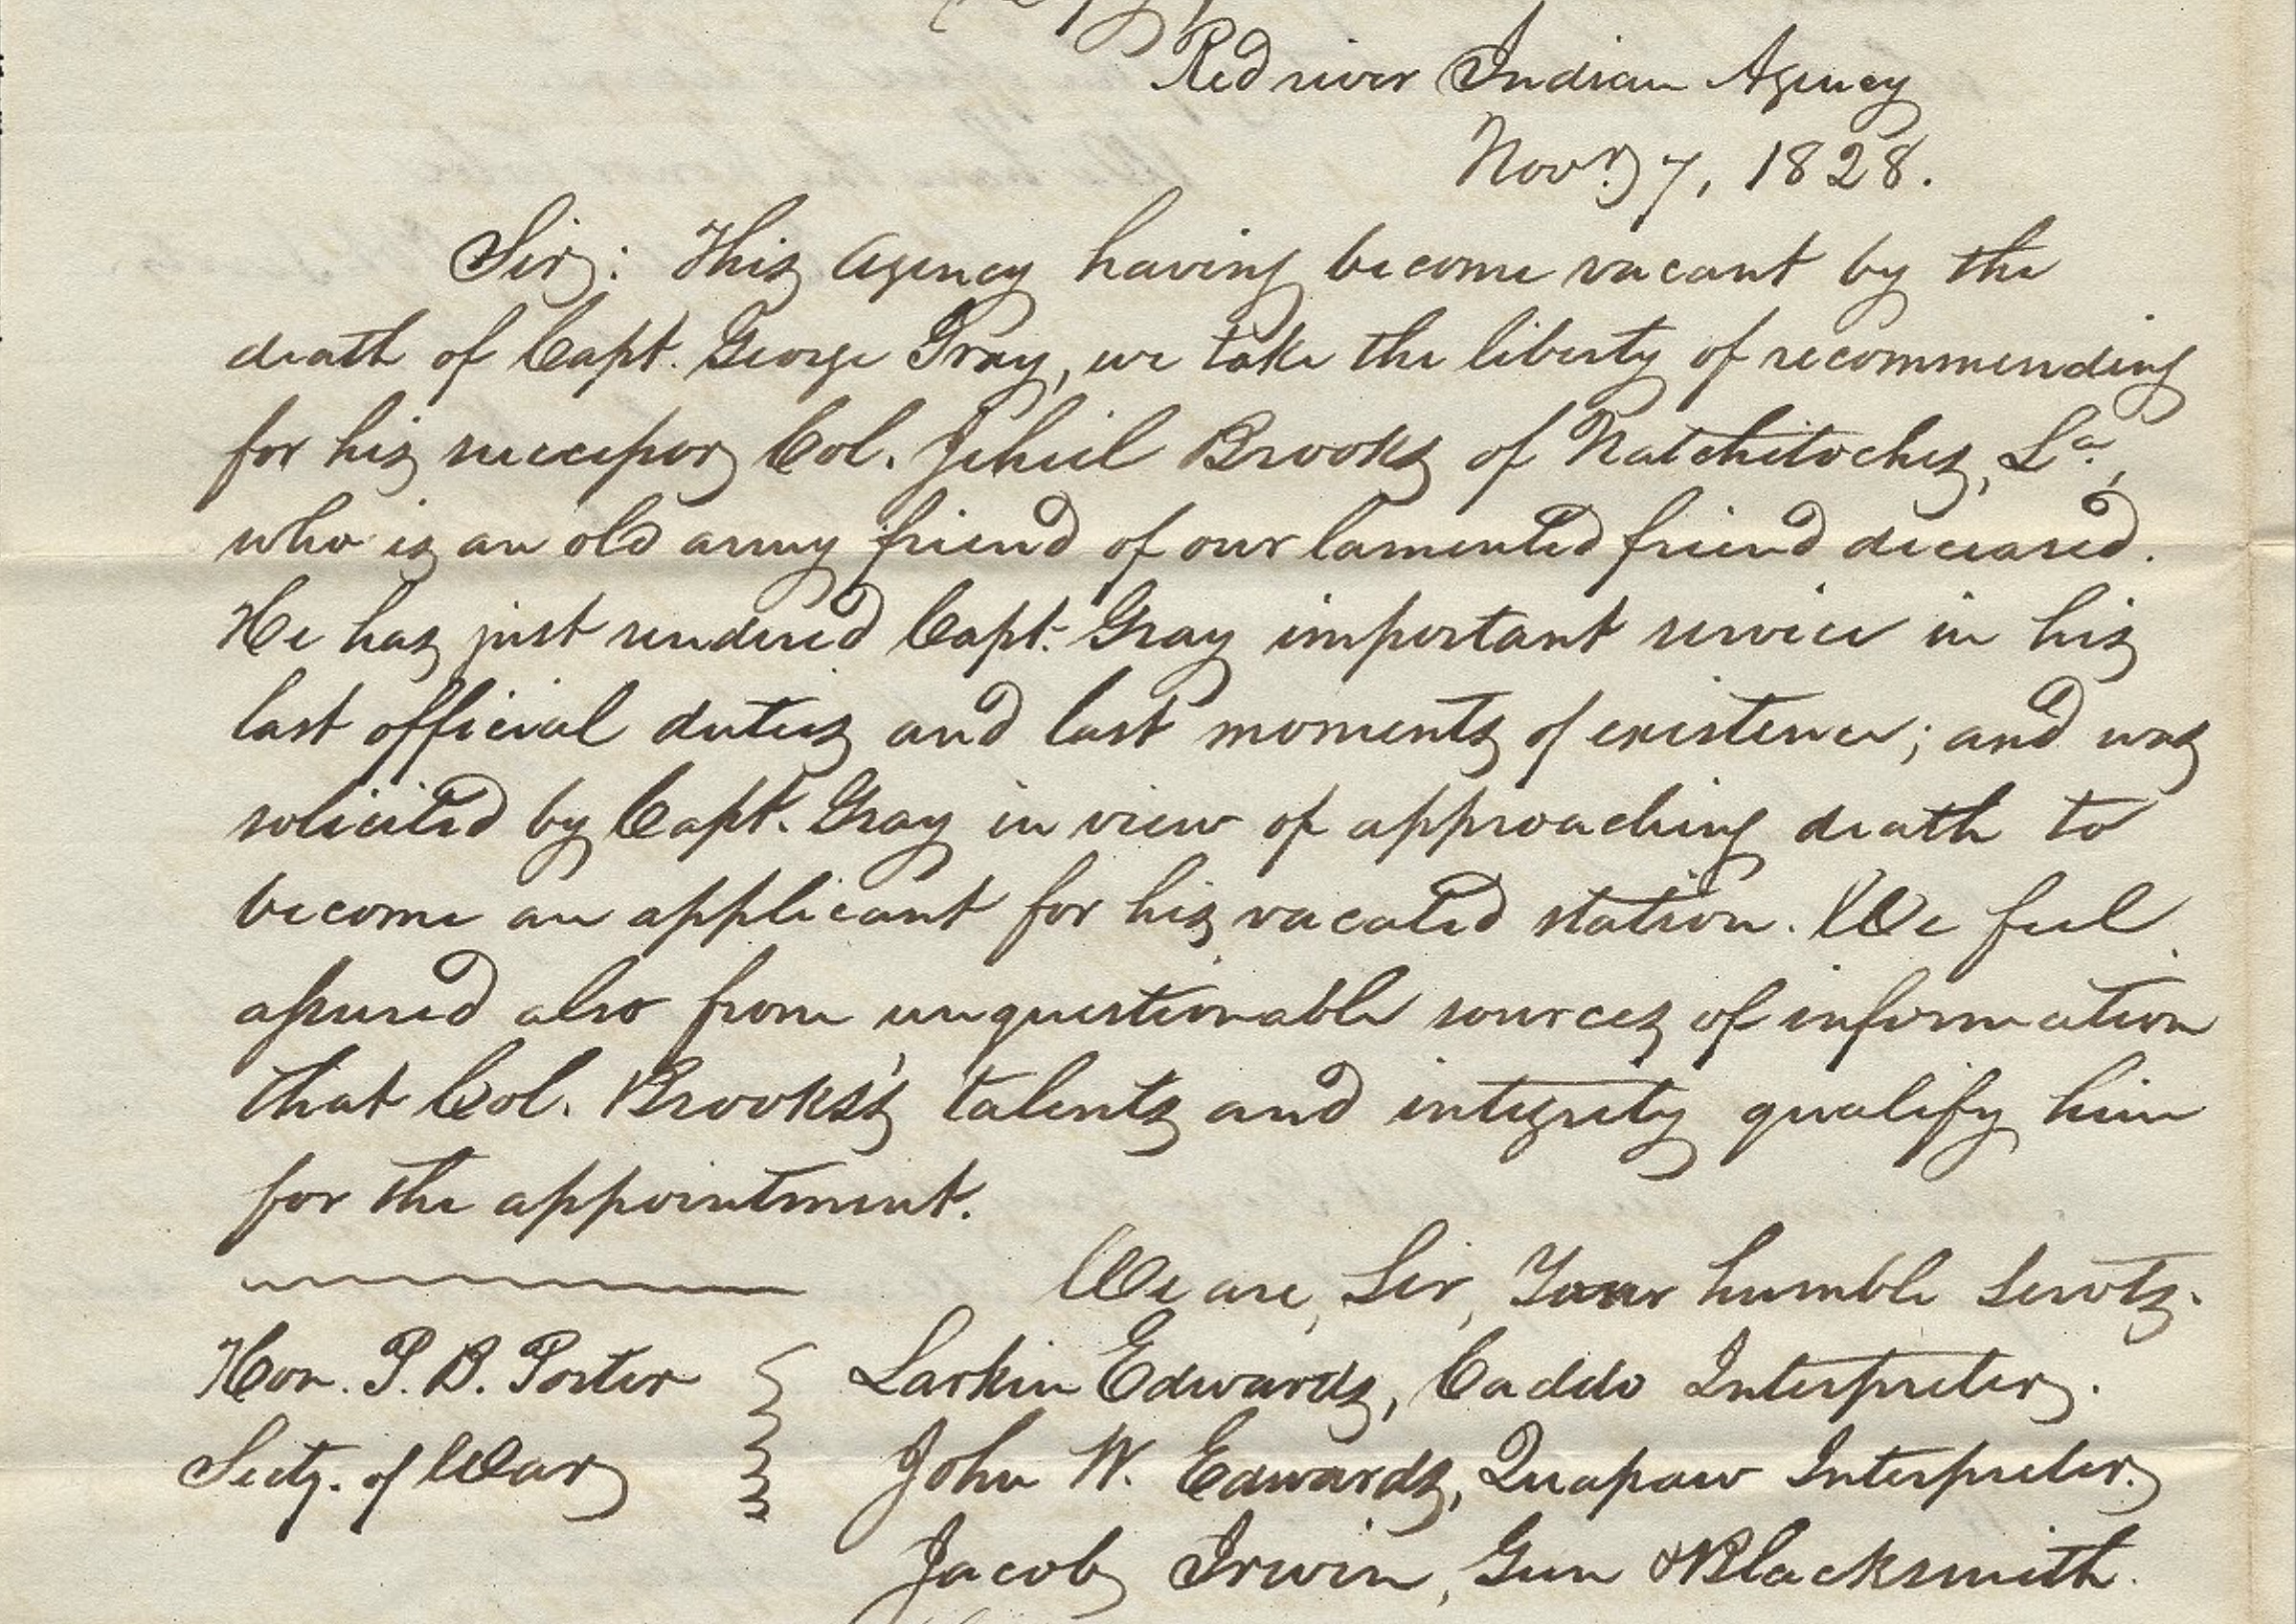 Red river Indian Agency
Novr. 7, 1828.
Sir: This Agency having become vacant by the
death of Capt. George Gray, we take the liberty of recommending
for his successor Col. Jehiel Brooks of Natchitoches, La.,
who is an old army friend of our lamented friend deceased.
He has just rendered Capt. Gray important service in his
last official duties and last moments of existence; and was
solicited by Capt. Gray in view of approaching death to
become an applicant for his vacated station. We feel
assured also from unquestionable sources of information
that Col. Brooks's talents and integrity qualify him
for the appointment.
We are, Sir, Your humble Servts.
Hon. P. B. Porter
Secty. of War
Larkin Edwards, Caddo Interpreter.
John W. Edwards, Quapaw Interpreter.
Jacob Irwin, Gun & Blacksmith.